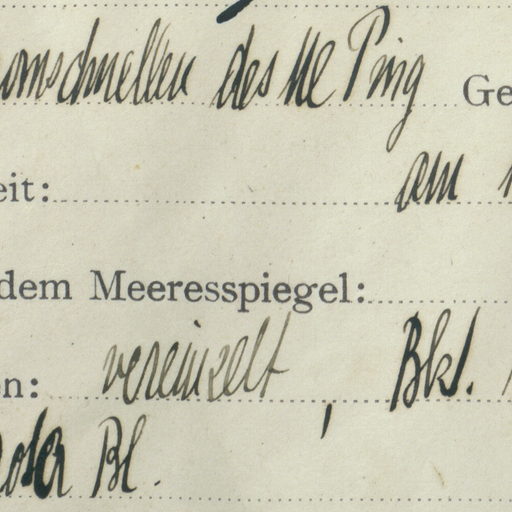 omschnellen des Me Ping Ge
eit: am
dem Meeresspiegel:
en: vereinzelt, Bkf.
Bl.